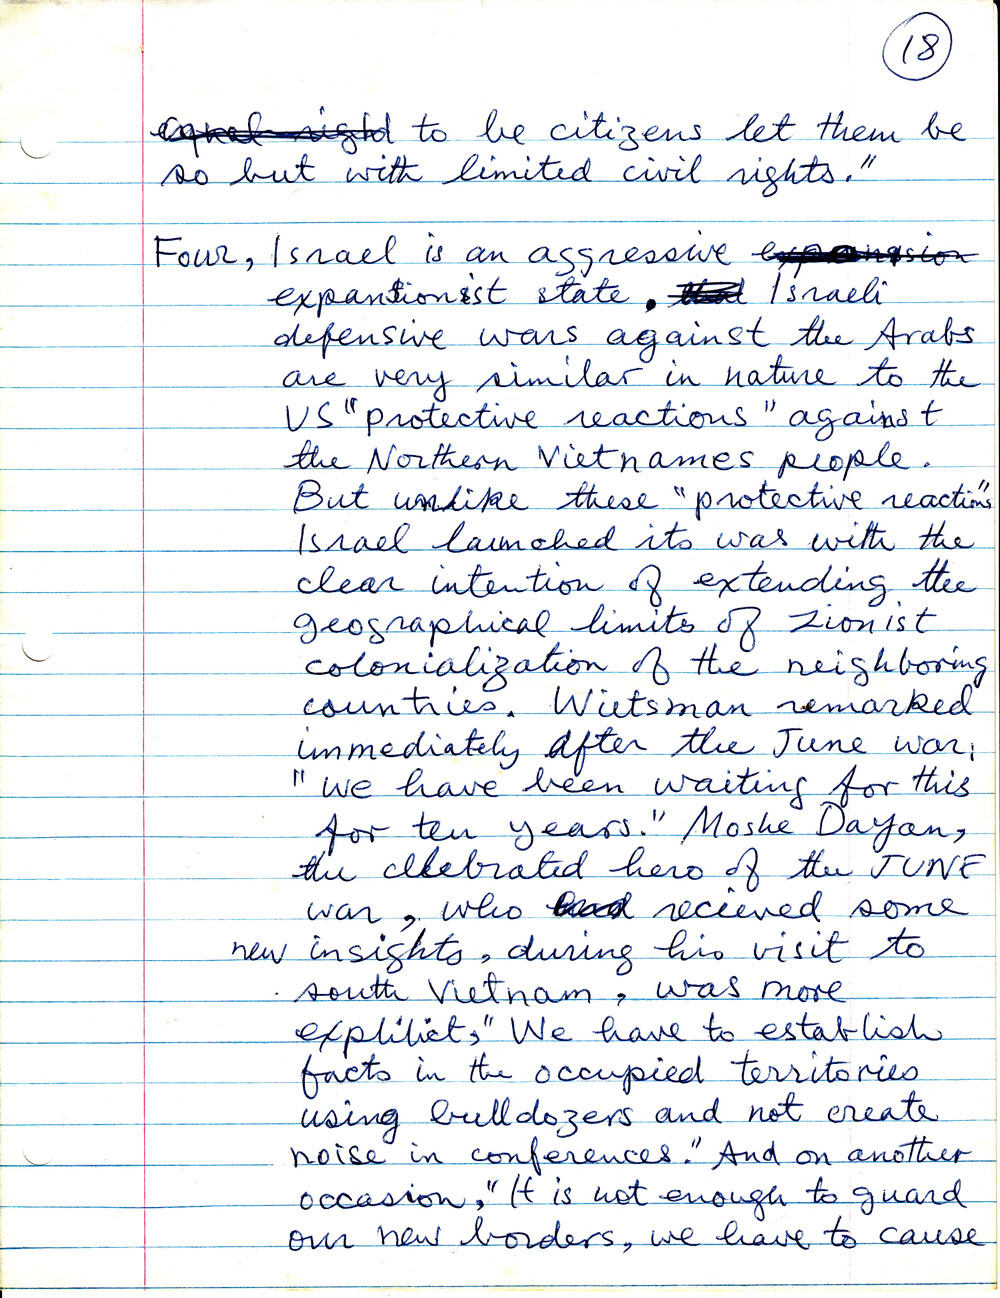 18
equal right to be citizens let them be
so but with limited civil rights."
Four, Israel is an aggressive expansion
expantionist state, Israeli
defensive wars against the Arabs
are very similar in nature to the
US "protective reactions" against
the Northern Vietnames people.
But unlike these "protective reactions"
Israel launched its was with the
clear intention of extending the
geographical limits of Zionist
colonialization of the neighboring
countries. Wietsman remarked
immediately after the June war;
"we have been waiting for this
for ten years." Moshe Dayan,
the clebrated hero of the JUNE
war, who had recieved some
new insights, during his visit to
south Vietnam, was more
explilict, "We have to establish
facts in the occupied territories
using bulldozers and not create
noise in conferences." And on another
occasion, "It is not enough to guard
our new borders, we have to cause